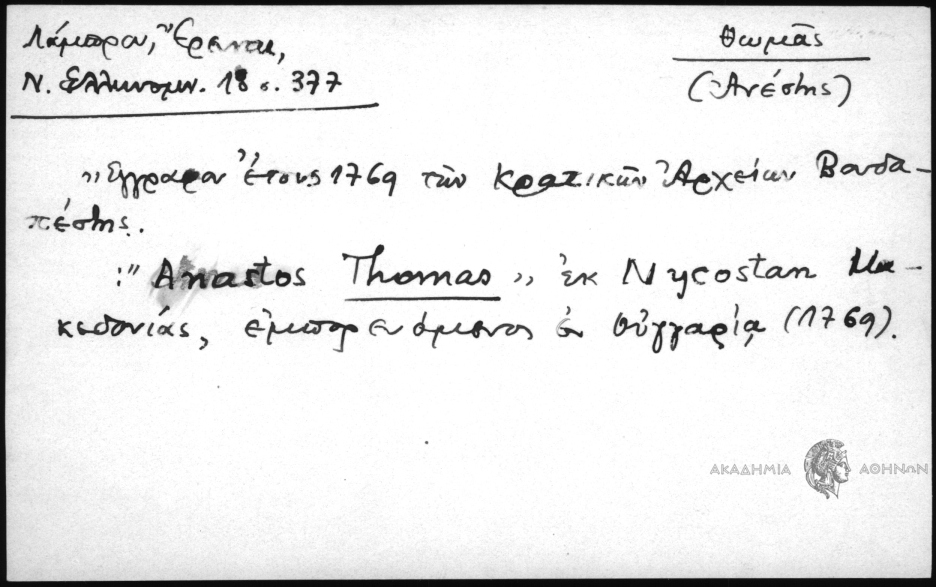 Λάμπρου, Ἔρευναι,
Ν. Ἑλληνομν. 18 σ. 377
Θωμᾶς
(Ἀνέστης)
"Ἔγγραφον" ἔτους 1769 τῶν Κρατικῶν Ἀρχείων Βουδα-
πέστης.
:" Anastos Thomas " ἐκ Nycostan Μα-
κεδονίας, ἐμπορευόμενος ἐν Οὑγγαρίᾳ (1769).
ΑΚΑΔΗΜΙΑ ΑΘΗΝΩΝ